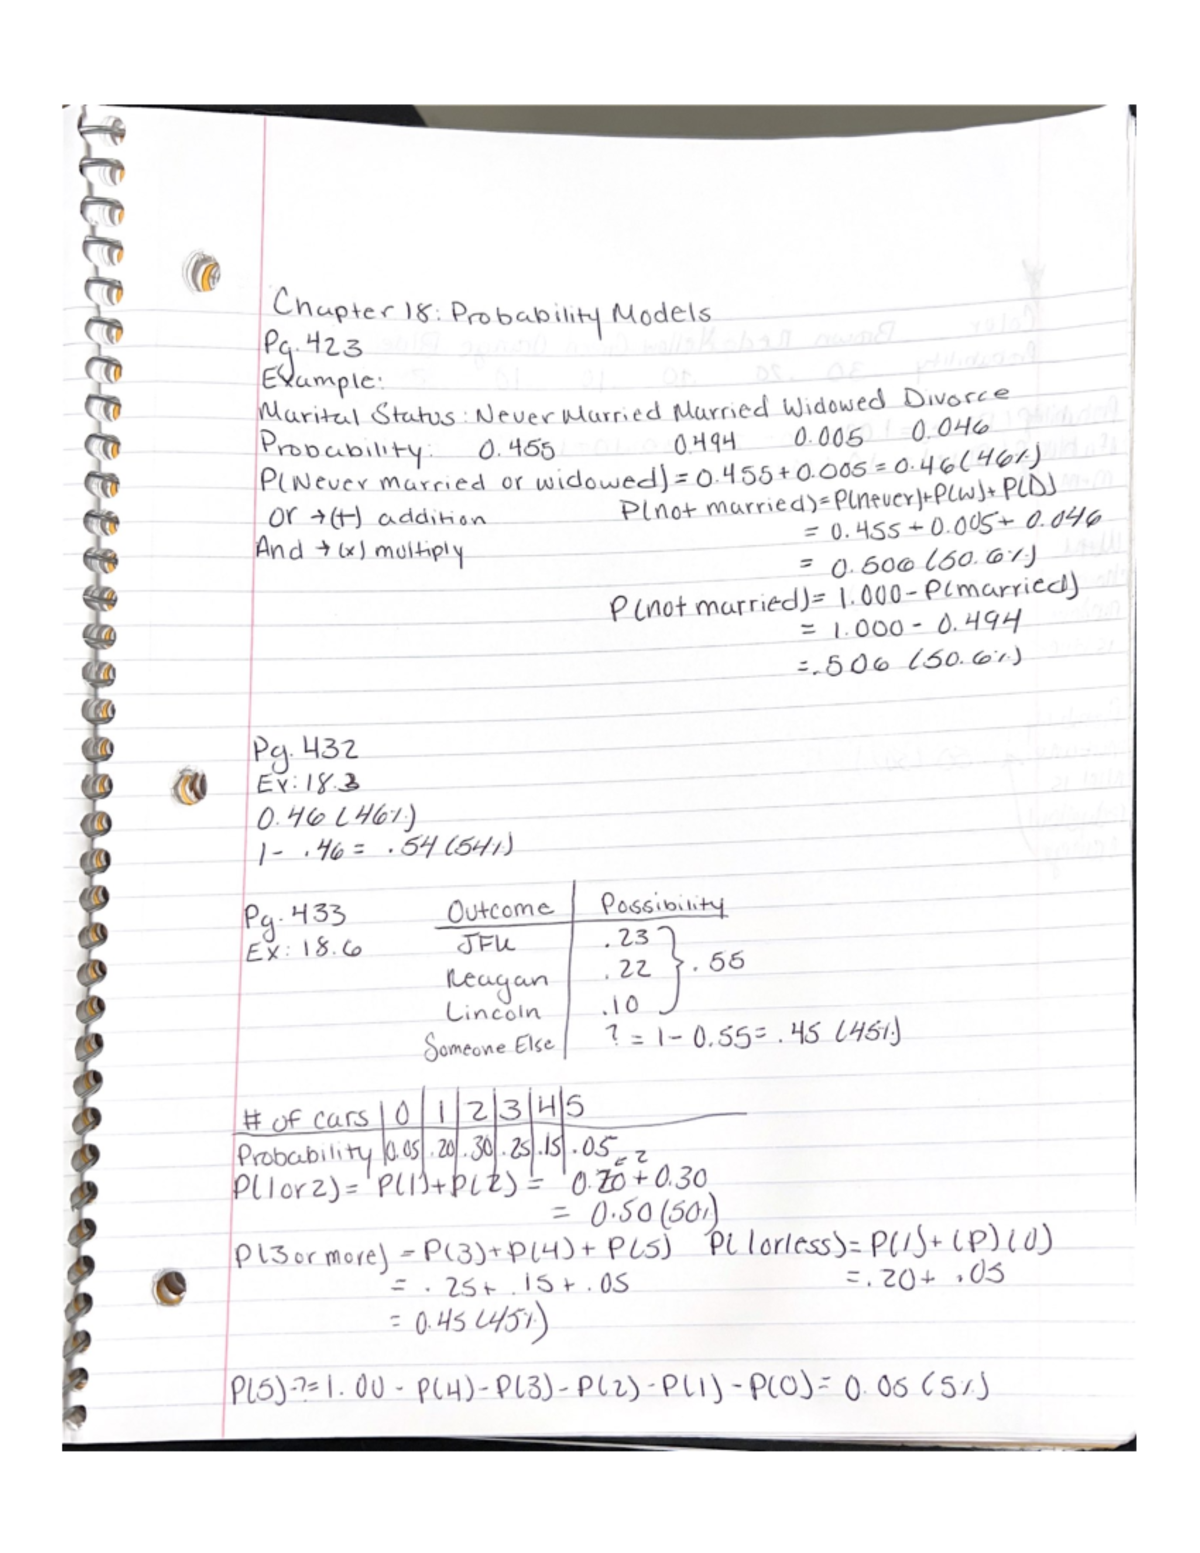 Chapter 18: Probability Models
Pg. 423
Example:
Marital Status: Never Married Married Widowed Divorce
Probability: 0.455 0.494 0.005 0.046
P(Never married or widowed) = 0.455 + 0.005 = 0.46 (46%)
Or → (+) addition
And → (x) multiply
P(not married) = P(never) + P(W) + P(D)
= 0.455 + 0.005 + 0.046
= 0.506 (50.6%)
P(not married) = 1.000 - P(married)
= 1.000 - 0.494
= .506 (50.6%)
Pg. 432
Ex: 18.3
0.46 (46%)
1 - .46 = .54 (54%)
Pg. 433
Ex: 18.6
Outcome Possibility
JFK .23
Reagan .22 } .55
Lincoln .10
Someone Else ? = 1 - 0.55 = .45 (45%)
# of cars 0 1 2 3 4 5
Probability 0.05 .20 .30 .25 .15 .05
P(1 or 2) = P(1) + P(2) = 0.20 + 0.30
= 0.50 (50%)
P(3 or more) = P(3) + P(4) + P(5)
= .25 + .15 + .05
= 0.45 (45%)
P(1 or less) = P(1) + (P)(0)
= .20 + .05
P(5) -? = 1.00 - P(4) - P(3) - P(2) - P(1) - P(0) = 0.05 (5%)